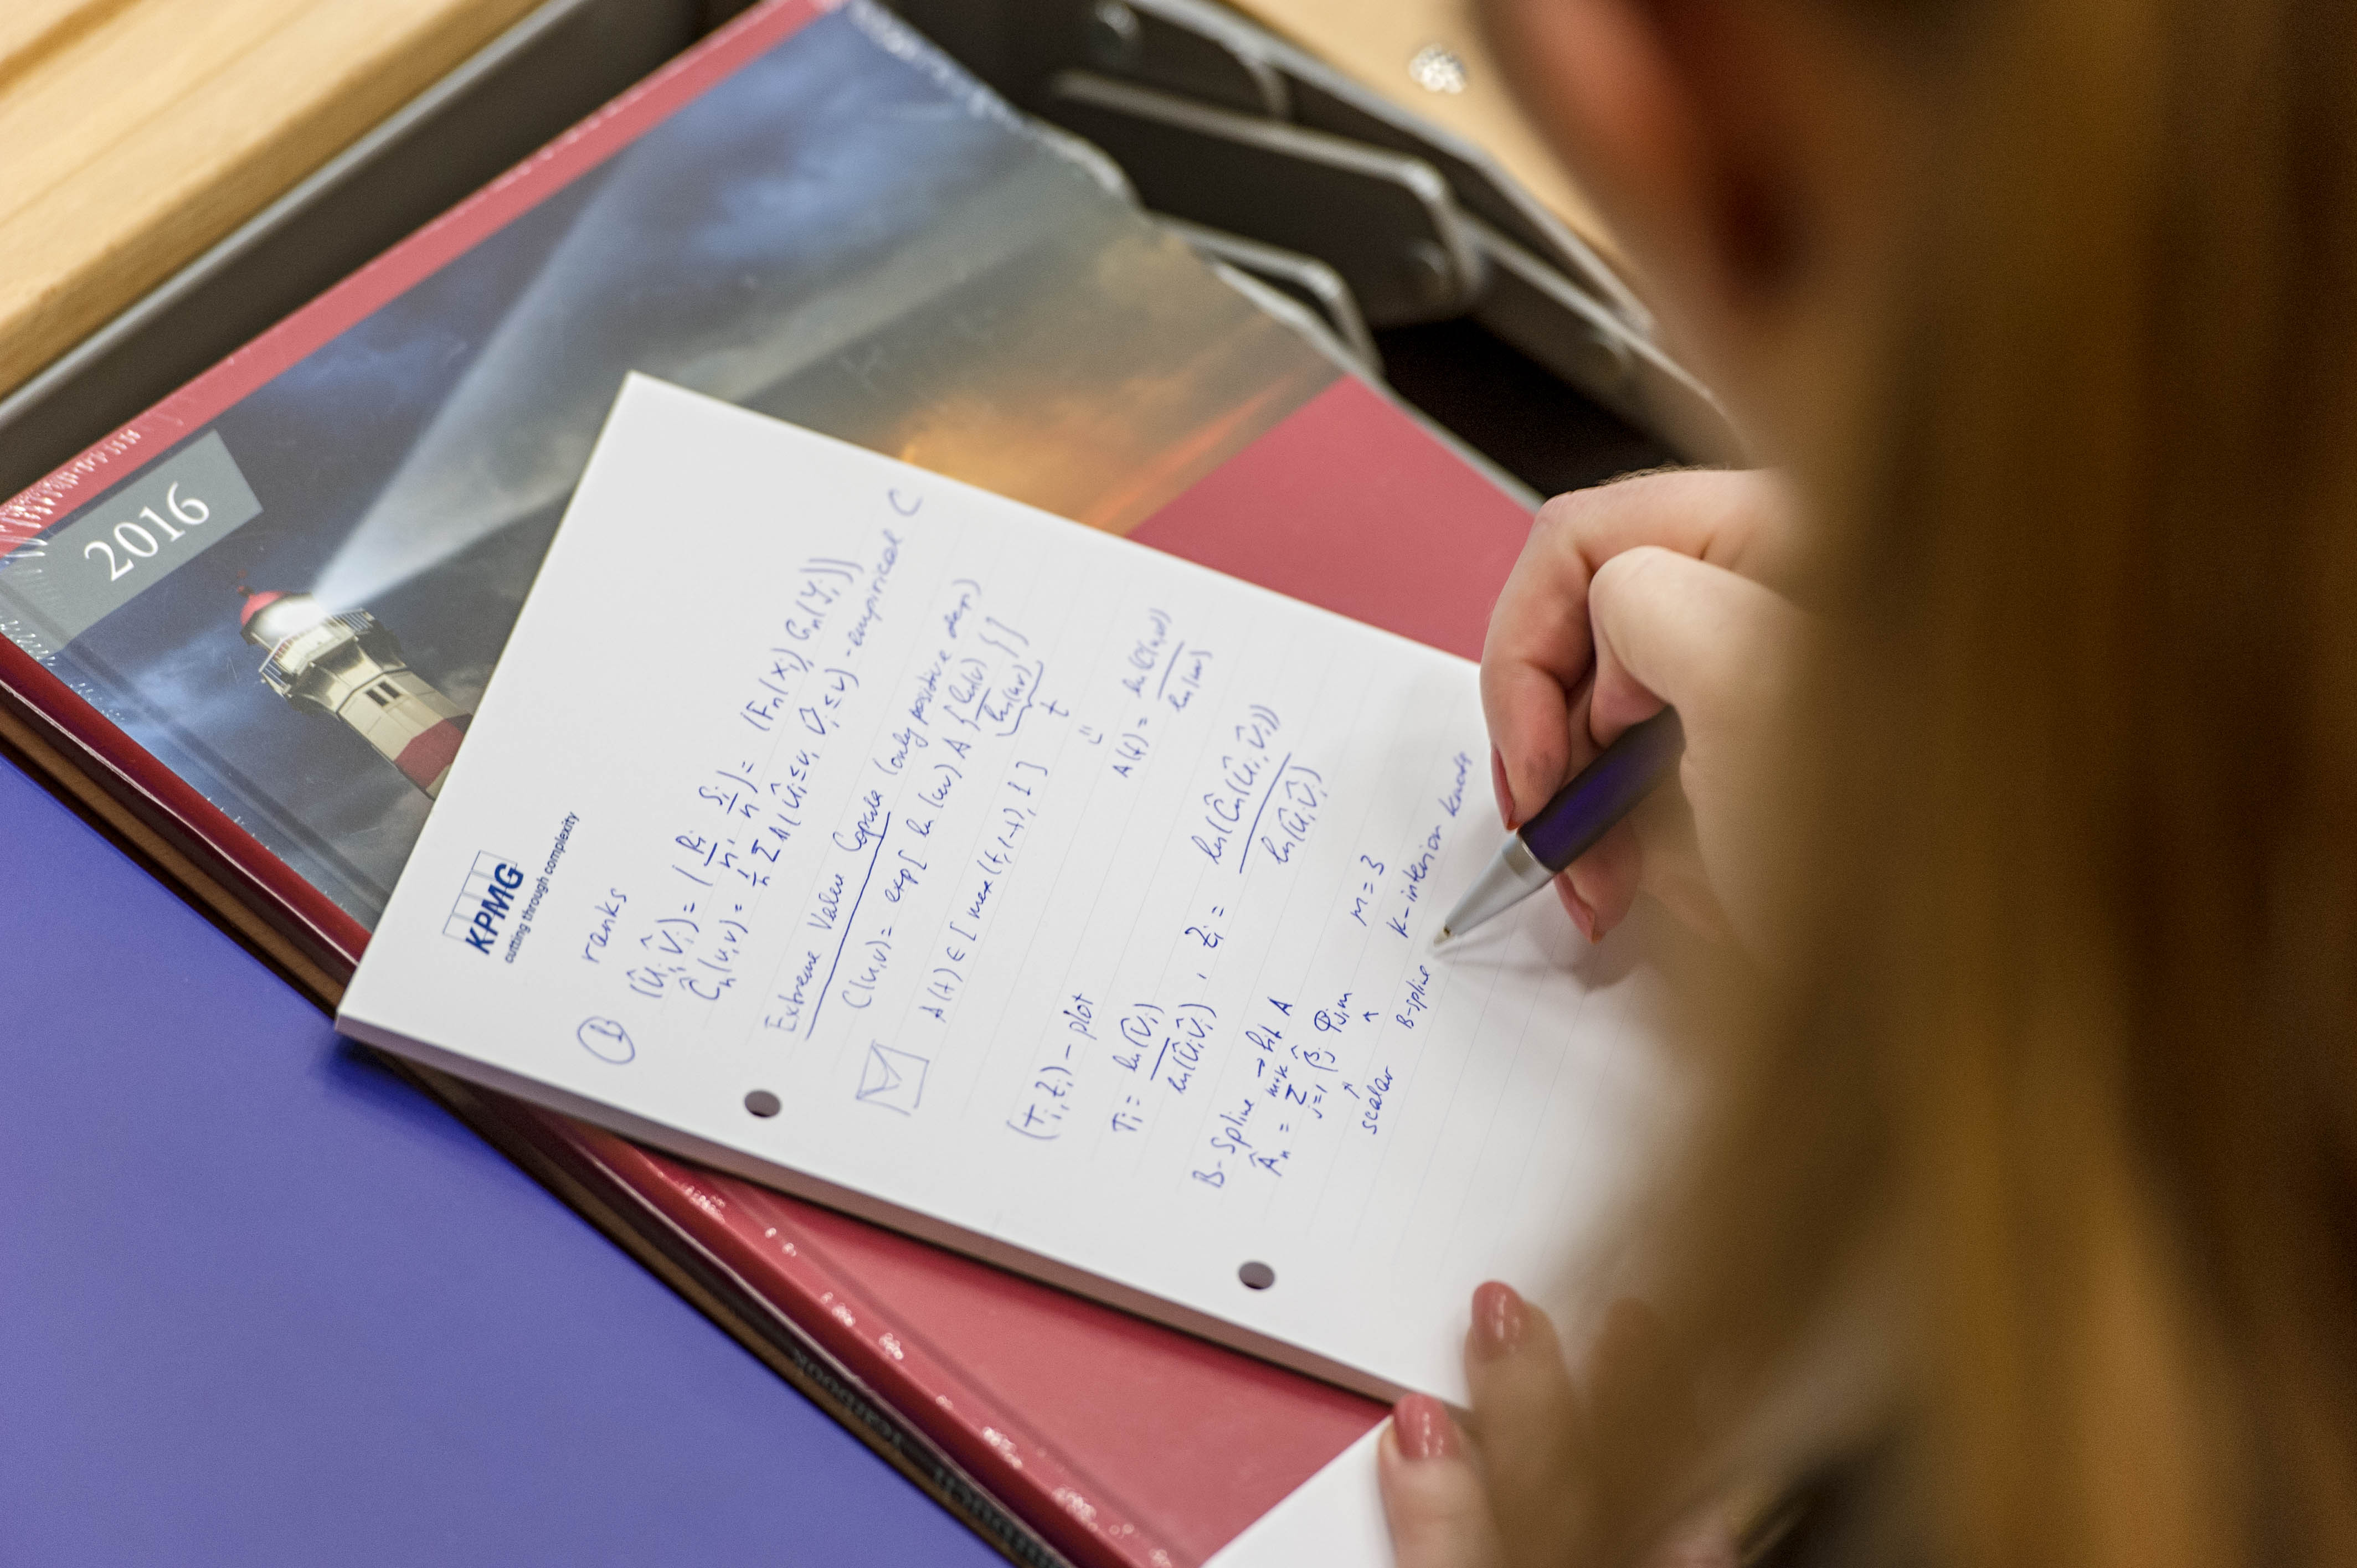 2016
KPMG
cutting through complexity
ranks
① (Û_i, V̂_i) = (R_i/n, S_i/n) = (F_n(x_i), G_n(y_i))
Ĉ_n(u,v) = 1/n Σ 1(Û_i ≤ u, V̂_i ≤ v) - empirical C
Extreme Value Copula (only positive dep)
C(u,v) = exp[ln(uv) A{ln(v)/ln(uv)}]
t
A(t) ∈ [max(t, 1-t), 1]
A(t) = ln(C(u,v))/ln(uv)
(T_i, Z_i) - plot
T_i = ln(V̂_i)/ln(Û_i V̂_i), Z_i = ln(Ĉ_n(Û_i, V̂_i))/ln(Û_i V̂_i)
B-Spline → fit A
Â_n = Σ_{j=1}^{m+k} β̂_j φ_{j,m} m = 3
↑ ↑ k - interior knots
scalar B-spline
Yearbook